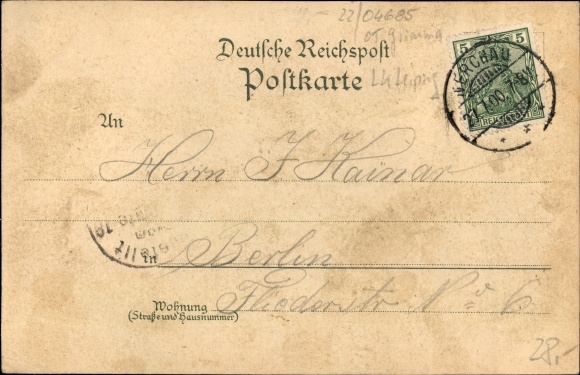 22/04685
Deutsche Reichspost
Postkarte
5 5
NERCHAU
27.1.00. 7-8V.
REICHSPOST
An
Herrn F Kainar
in Berlin
Wohnung
(Straße und Hausnummer)
Fliederstr No 6
28,-